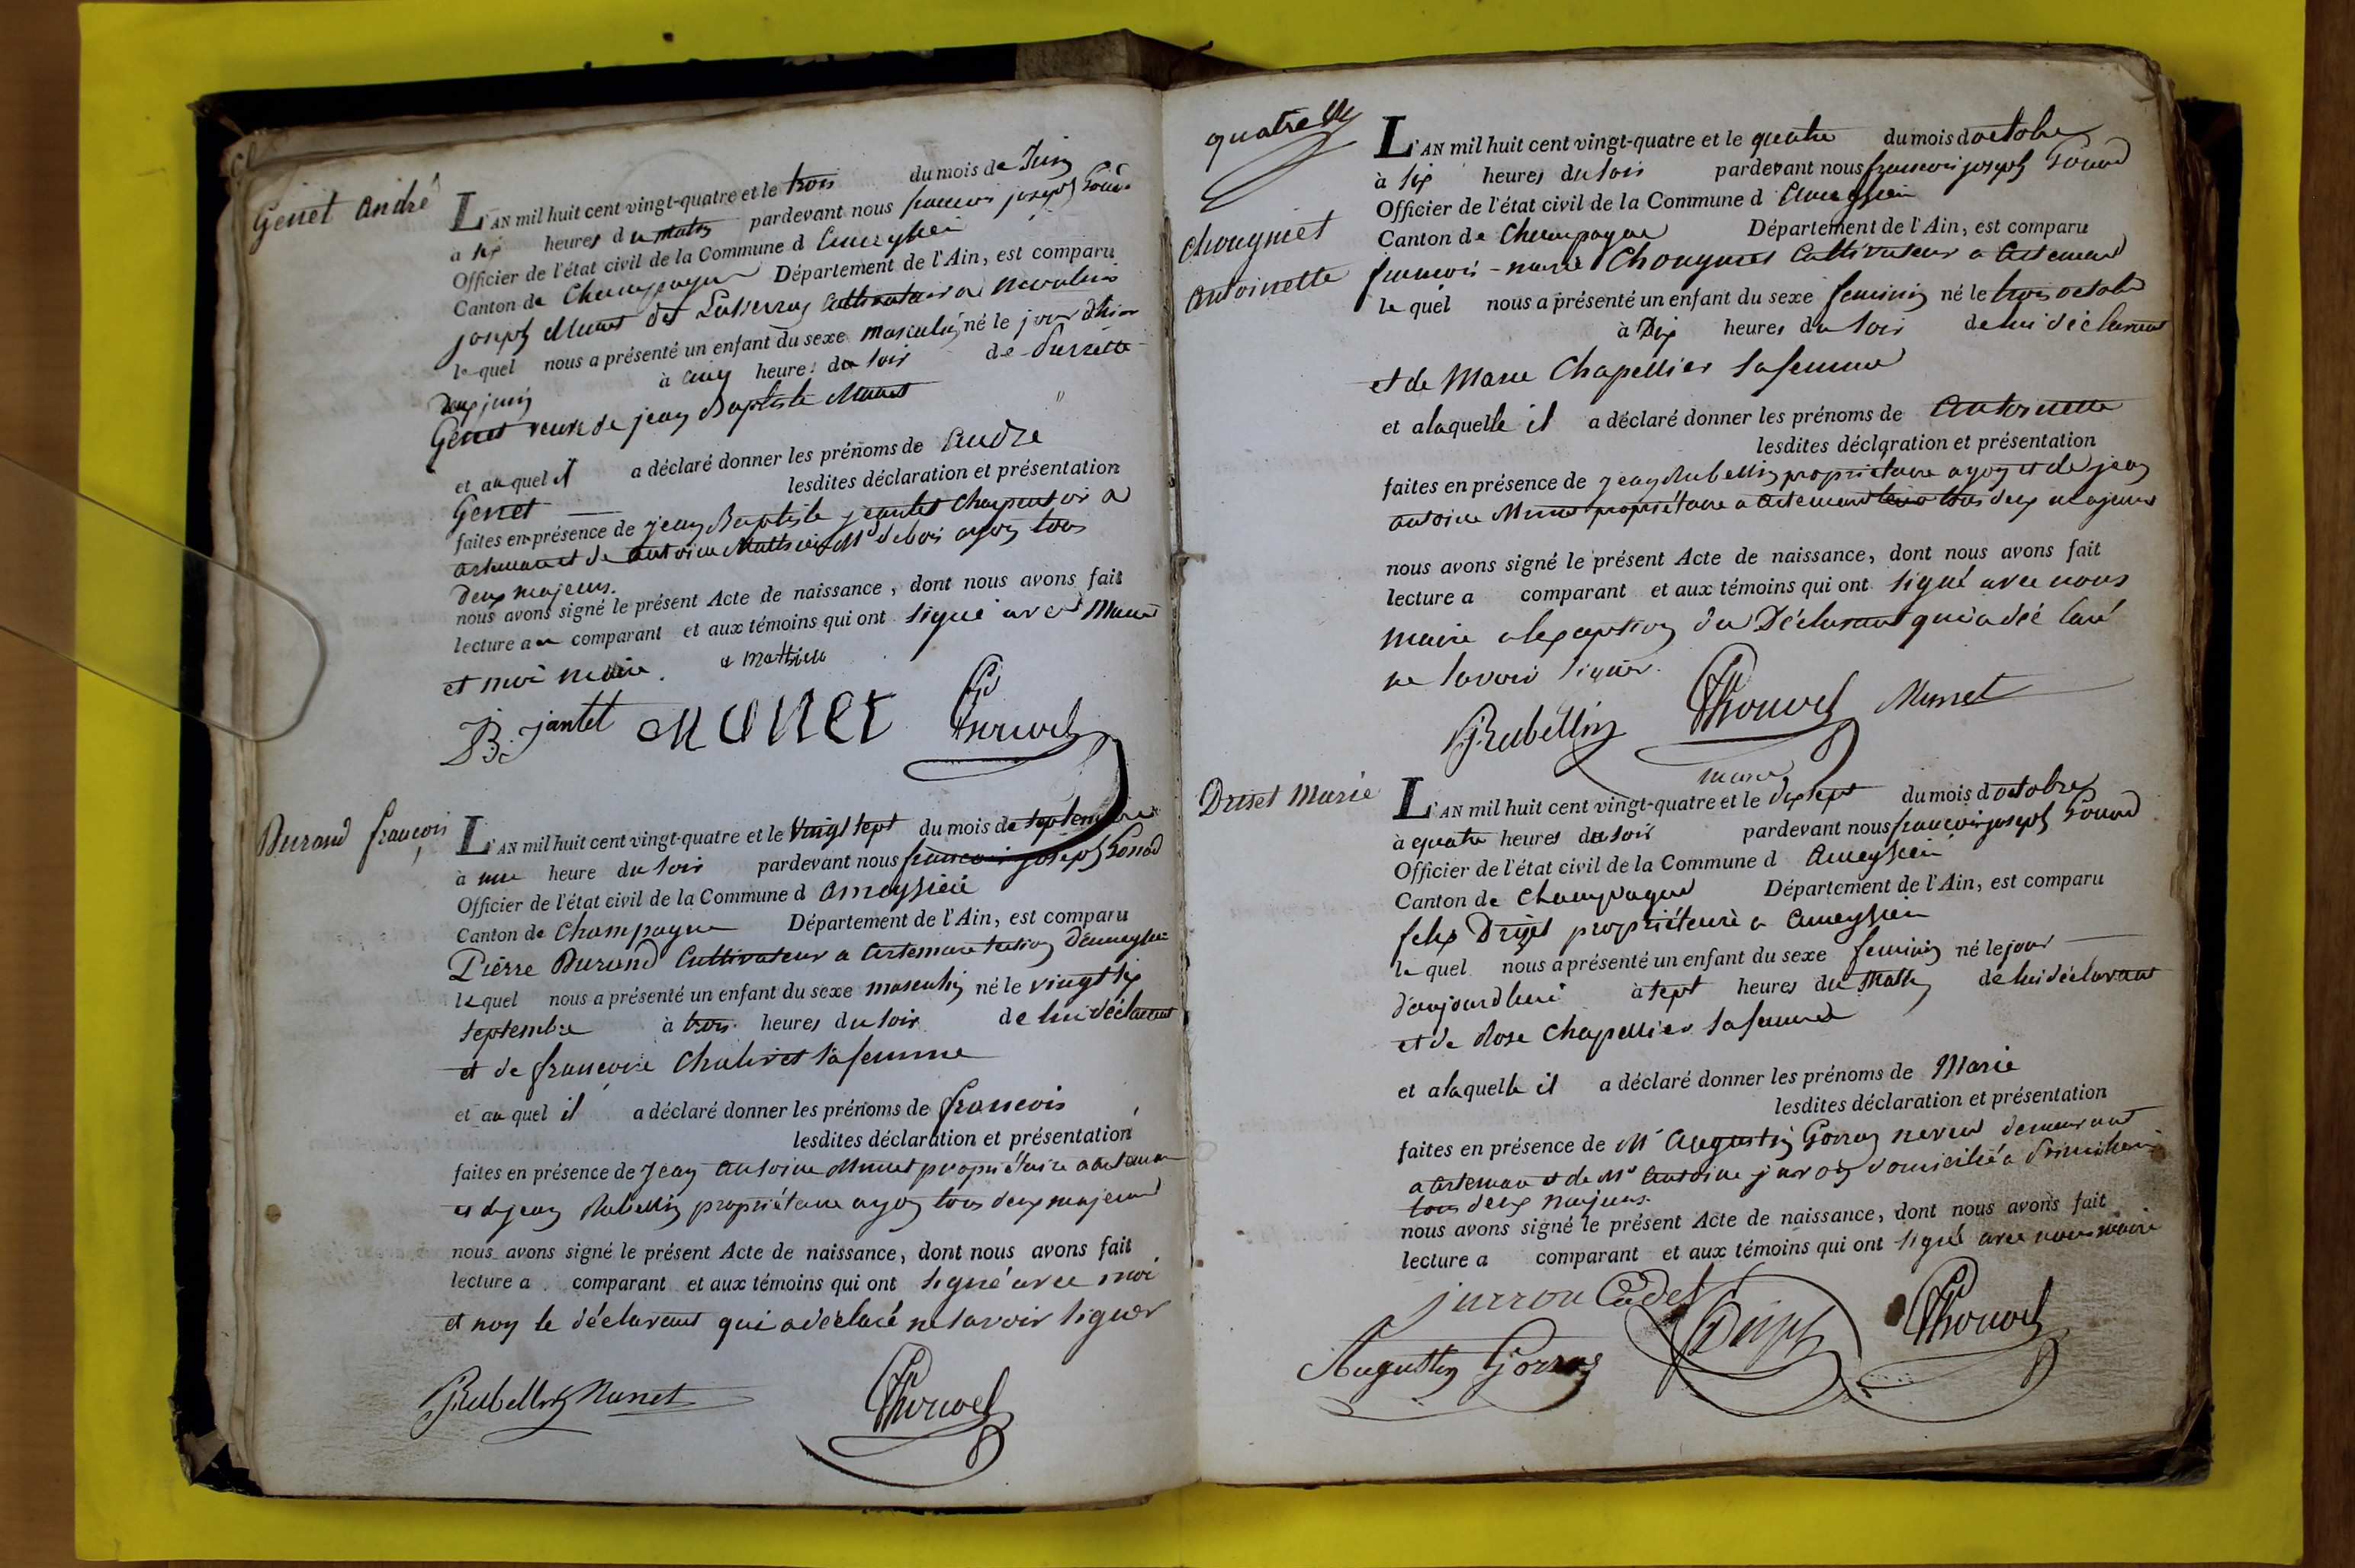 Genet André
L'AN mil huit cent vingt-quatre et le trois du mois de Juin
à six heures du matin pardevant nous francois joseph
Officier de l'état civil de la Commune d ameyzieu
Canton de Champagne Département de l'Ain, est comparu
joseph Munet dit cultivateur a
le quel nous a présenté un enfant du sexe masculin né le jour dhier
deux juin à cinq heures du soir de
Genet veuve de jean Baptiste Munet
et au quel il a déclaré donner les prénoms de André
Genet lesdites déclaration et présentation
faites en présence de jean Baptiste jeantet charpentier a
artemare et de antoine Mathieu Md de bois a yon tous
deux majeurs.
nous avons signé le présent Acte de naissance, dont nous avons fait
lecture au comparant et aux témoins qui ont signé avec Munet
et moi maire. & Mathieu
B. Jantet MUNET
Durand françois
L'AN mil huit cent vingt-quatre et le vingt sept du mois de septembre
à une heure du soir pardevant nous francois joseph
Officier de l'état civil de la Commune d ameyzieu
Canton de Champagne Département de l'Ain, est comparu
Pierre Durand Cultivateur a artemare section d'ameyzieu
le quel nous a présenté un enfant du sexe masculin né le vingt six
septembre à trois heures du soir de lui déclarant
et de francoise Chalivet sa femme
et au quel il a déclaré donner les prénoms de francois
lesdites déclaration et présentation
faites en présence de jean antoine Munet propriétaire a artemare
et de jean Rubellin propriétaire a yon tous deux majeurs
nous avons signé le présent Acte de naissance, dont nous avons fait
lecture a comparant et aux témoins qui ont signé avec moi
et non le déclarant qui a déclaré ne savoir signer
Rubellin Munet
Chougniet
antoinette
L'AN mil huit cent vingt-quatre et le quatre du mois d octobre
à six heures du soir pardevant nous francois joseph
Officier de l'état civil de la Commune d ameyzieu
Canton de Champagne Département de l'Ain, est comparu
francois-marie Chougniet Cultivateur a artemare
le quel nous a présenté un enfant du sexe feminin né le trois octobre
à Dix heures du soir de lui déclarant
et de Marie Chapellier sa femme
et a laquelle il a déclaré donner les prénoms de antoinette
lesdites déclaration et présentation
faites en présence de jean Rubellin propriétaire a yon et de jean
antoine Munet propriétaire a artemare tous deux majeurs
nous avons signé le présent Acte de naissance, dont nous avons fait
lecture a comparant et aux témoins qui ont signé avec nous
maire a lexception du Déclarant qui a déclaré
ne savoir signer.
Rubellin Munet
maire
Driset Marie
L'AN mil huit cent vingt-quatre et le dix sept du mois d octobre
à quatre heures du soir pardevant nous francois joseph
Officier de l'état civil de la Commune d ameyzieu
Canton de Champagne Département de l'Ain, est comparu
felix Driset propriétaire a ameyzieu
le quel nous a présenté un enfant du sexe feminin né le jour
d'aujourdhui à sept heures du Matin de lui déclarant
et de Rose Chapellier sa femme
et a laquelle il a déclaré donner les prénoms de Marie
lesdites déclaration et présentation
faites en présence de Mr Augustin Gorraz neveu demeurant
a artemare et de Mr antoine jurron domicilié a
tous deux majeurs.
nous avons signé le présent Acte de naissance, dont nous avons fait
lecture a comparant et aux témoins qui ont signé avec nous maire
jurron Cadet
Augustin Gorraz